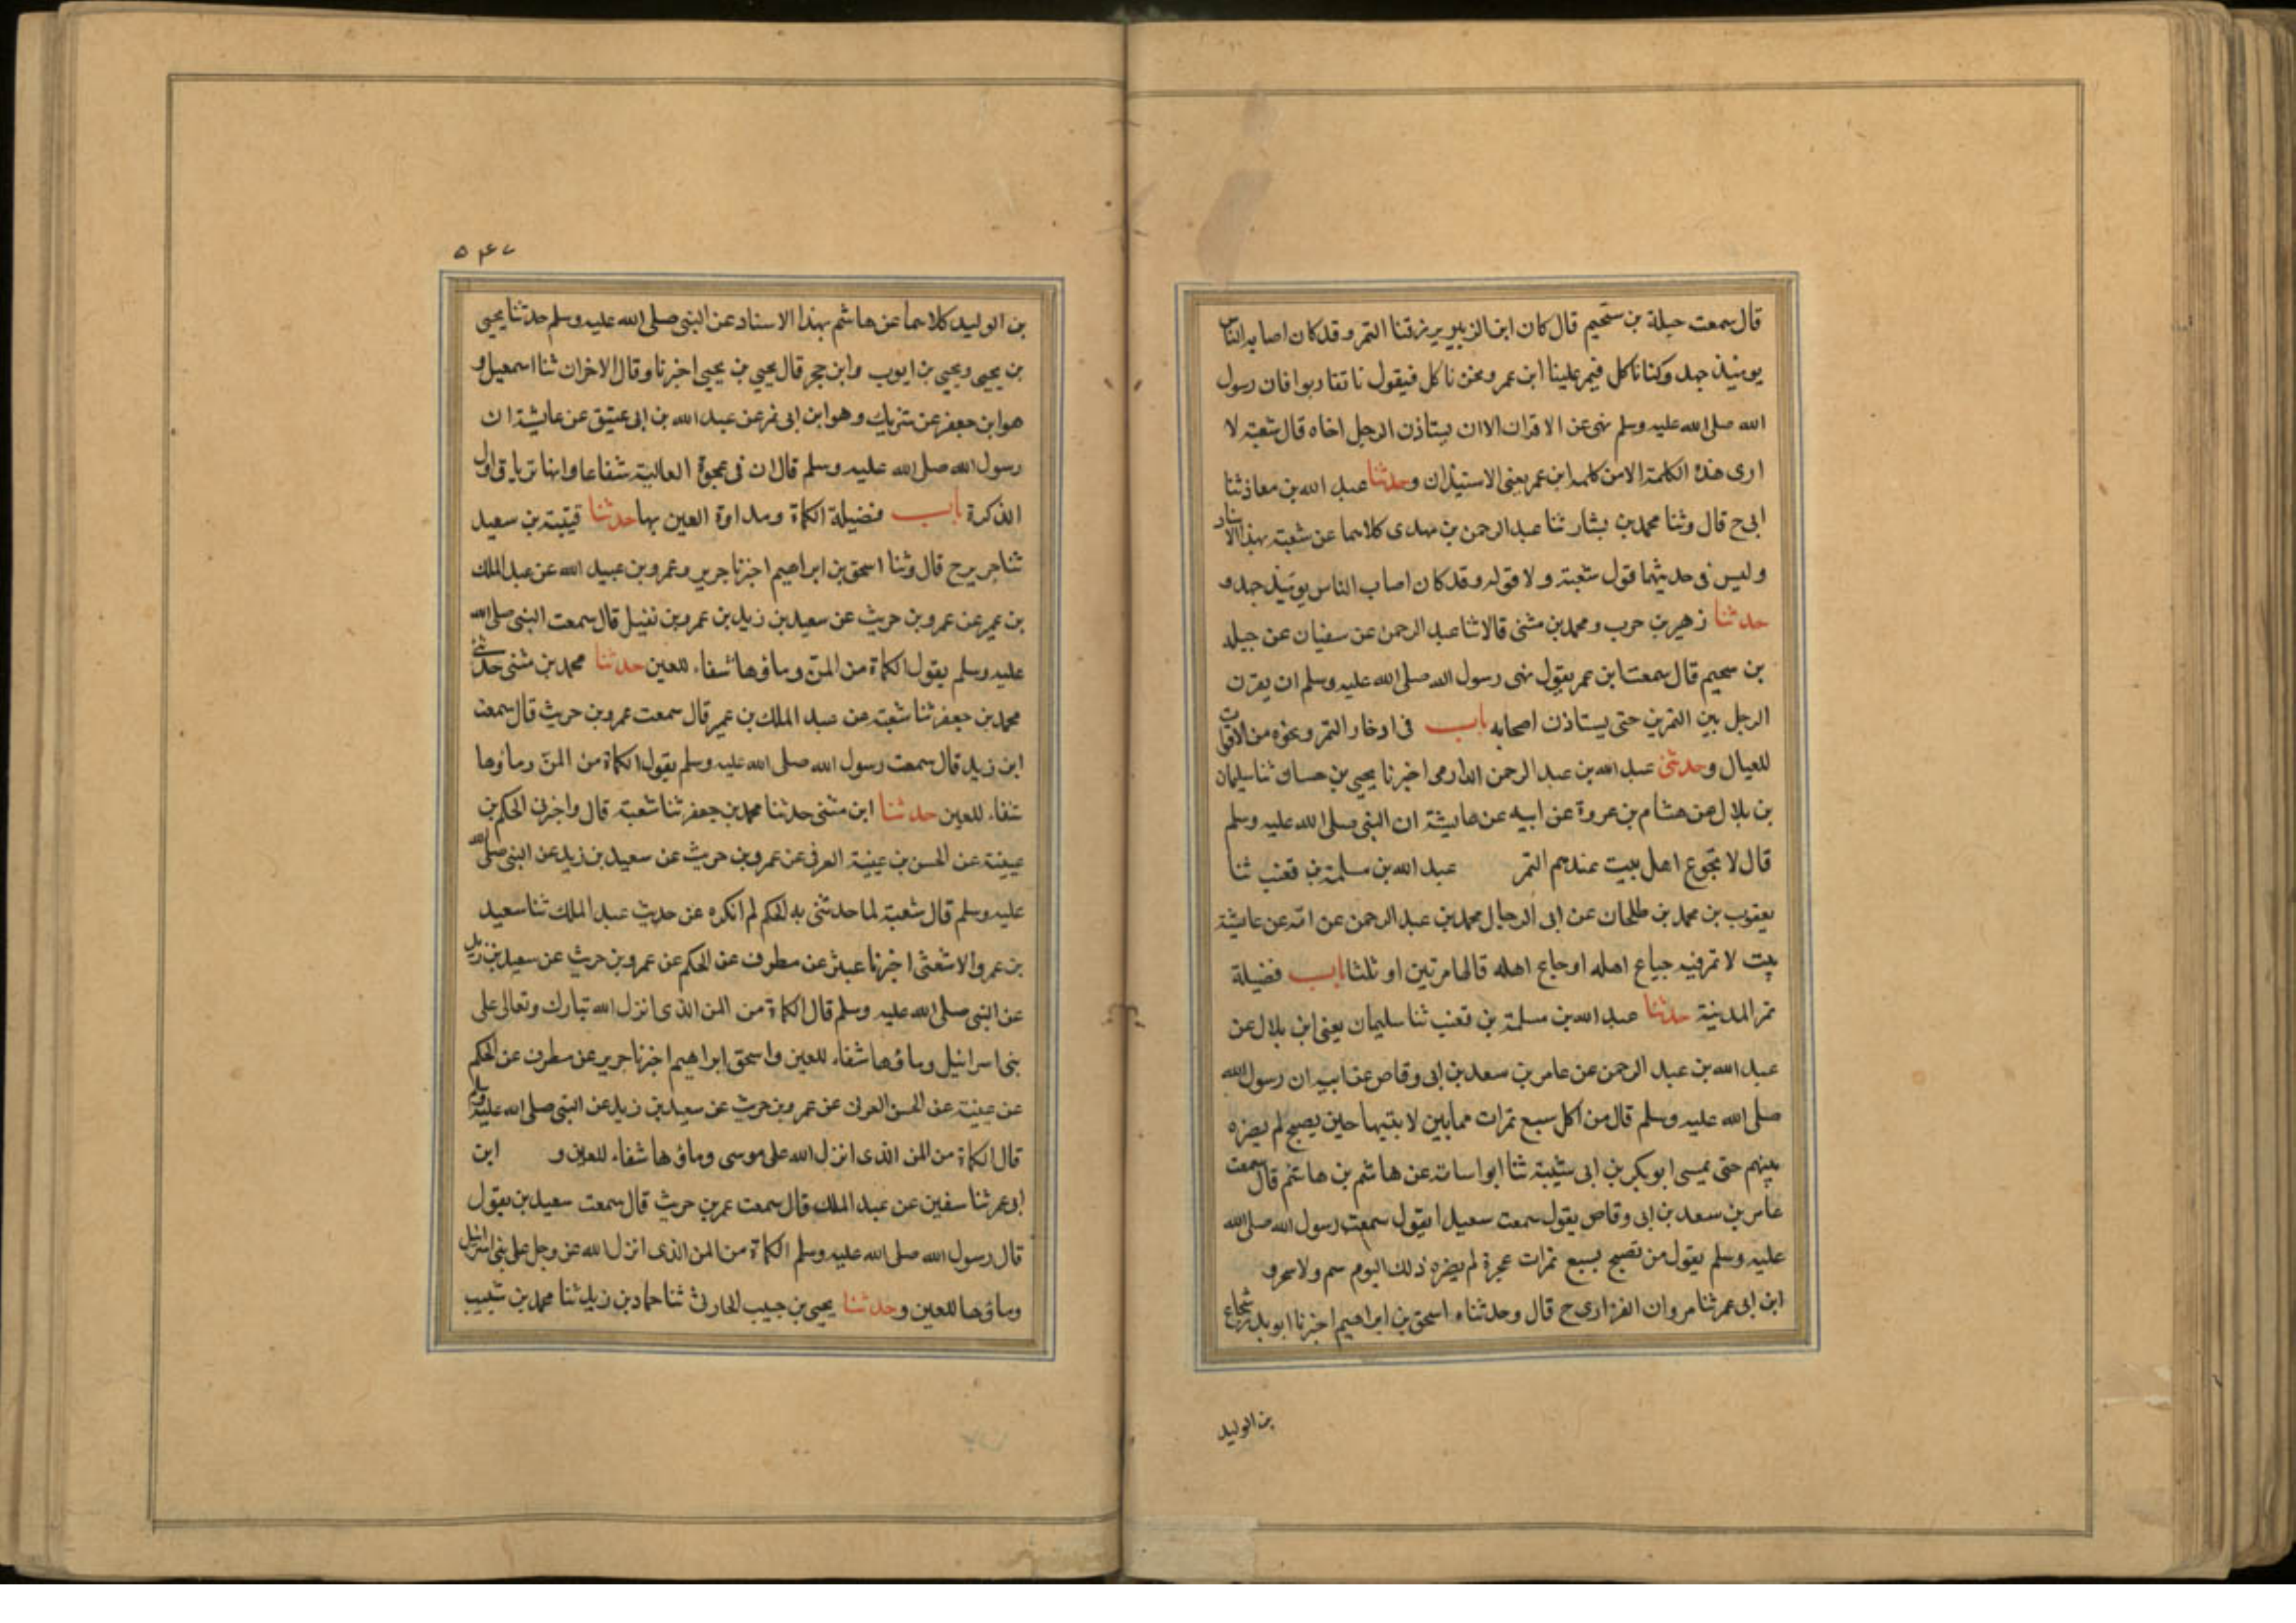 قال سمعت جبلة بن سحيم قال كان ابن الزبير يرزقنا التمر وقد كان اصابه الناس
يومئذ جهد وكنا ناكل فيمر علينا ابن عمر ونحن ناكل فيقول نا تقاربوا فان رسول
الله صلى الله عليه وسلم نهى عن الاقران الا ان يستاذن الرجل اخاه قال شعبة لا
ارى هذه الكلمة الا من كلمه ابن عمر يعنى الاستيذان وحدثنا عبد الله بن معاذ ثنا
ابى ح قال وثنا محمد بن بشار ثنا عبد الرحمن بن مهدى كلاهما عن شعبة بهذا الاسناد
وليس فى حديثهما قول شعبة ولا قوله وقد كان اصاب الناس يومئذ جهد و
حدثنا زهير بن حرب ومحمد بن مثنى قالا ثنا عبد الرحمن عن سفيان عن جبله
بن سحيم قال سمعت ابن عمر يقول نهى رسول الله صلى الله عليه وسلم ان يقرن
الرجل بين التمرين حتى يستاذن اصحابه باب فى ادخار التمر ونحوه من الاقوات
للعيال وحدثنى عبد الله بن عبد الرحمن الدارمى اخبرنا يحيى بن حسان ثنا سليمان
بن بلال عن هشام بن عروة عن ابيه عن عايشة ان النبى صلى الله عليه وسلم
قال لا تجوع اهل بيت عندهم التمر عبد الله بن مسلمة بن قعنب ثنا
يعقوب بن محمد بن طلحان عن ابى الرجال محمد بن عبد الرحمن عن امه عن عايشة
بيت لا تمر فيه جياع اهله او جاع اهله قالها مرتين او ثلثا باب فضيلة
تمر المدينة حدثنا عبد الله بن مسلمة بن قعنب ثنا سليمان يعنى ابن بلال عن
عبد الله بن عبد الرحمن عن عامر بن سعد بن ابى وقاص عن ابيه ان رسول الله
صلى الله عليه وسلم قال من اكل سبع تمرات مما بين لابتيها حين يصبح لم يضره
حتى يمسى ابو بكر بن ابى شيبة ثنا ابو اسامة عن هاشم بن هاشم قال سمعت
عامر بن سعد بن ابى وقاص يقول سمعت سعيدا يقول سمعت رسول الله صلى الله
عليه وسلم يقول من تصبح بسبع تمرات عجوة لم يضره ذلك اليوم سم ولا سحر و
ابن ابى عمر ثنا مروان الفزارى ح قال وحدثناه اسحق بن ابراهيم اخبرنا ابو بدر شجاع
بن الوليد
۵۴۷
بن الوليد كلاهما عن هاشم بهذا الاسناد عن النبى صلى الله عليه وسلم حدثنا يحيى
بن يحيى ويحيى بن ايوب وابن حجر قال يحيى بن يحيى اخبرنا وقال الاخران ثنا اسمعيل و
هو ابن جعفر عن شريك وهو ابن ابى نمر عن عبد الله بن ابى عتيق عن عايشة ان
رسول الله صلى الله عليه وسلم قال ان فى عجوة العالية شفاعا وانها ترياق اول
الذكرة باب فضيلة الكماة ومداوة العين بها حدثنا قيتبة بن سعيد
ثنا جرير ح قال وثنا اسحق بن ابراهيم اخبرنا جرير وعمرو بن عبيد الله عن عبد الملك
بن عمير عن عمرو بن حريث عن سعيد بن زيد بن عمرو بن نفيل قال سمعت النبى صلى الله
عليه وسلم يقول الكماة من المن وماؤها شفاء للعين حدثنا محمد بن مثنى حدثنى
محمد بن جعفر ثنا شعبة عن عبد الملك بن عمير قال سمعت عمرو بن حريث قال سمعت
ابن زيد قال سمعت رسول الله صلى الله عليه وسلم يقول الكماة من المن وماؤها
شفاء للعين حدثنا ابن مثنى حدثنا محمد بن جعفر ثنا شعبة قال واخبرنى الحكم بن
عيينة عن الحسن بن عيينة العرفى عن عمرو بن حريث عن سعيد بن زيد عن النبى صلى الله
عليه وسلم قال شعبة لما حدثنى به الحكم لم انكره عن حديث عبد الملك ثنا سعيد
بن عمرو الاشعثى اخبرنا عبثر عن مطرف عن الحكم عن عمرو بن حريث عن سعيد بن زيد
عن النبى صلى الله عليه وسلم قال الكماة من المن الذى انزل الله تبارك وتعالى على
بنى اسرائيل وماؤها شفاء للعين واسحق ابراهيم اخبرنا جرير عن مطرف عن الحكم
عن عيينة عن الحسن العرنى عن عمرو بن حريث عن سعيد بن زيد عن النبى صلى الله عليه وسلم
قال الكماة من المن الذى انزل الله على موسى وماؤها شفاء للعين و ابن
ابى عمر ثنا سفين عن عبد الملك قال سمعت عمر بن حريث قال سمعت سعيد بن يقول
قال رسول الله صلى الله عليه وسلم الكماة من المن الذى انزل الله عز وجل على بنى اسرائيل
وماؤها للعين وحدثنا يحيى بن حبيب الحارثى ثنا حماد بن زيد ثنا محمد بن شبيب